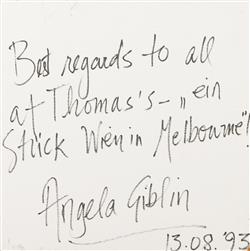 Best regards to all
at Thomas's – „ein
Stück Wien in Melbourne"!
Angela Giblin
13.08.'93